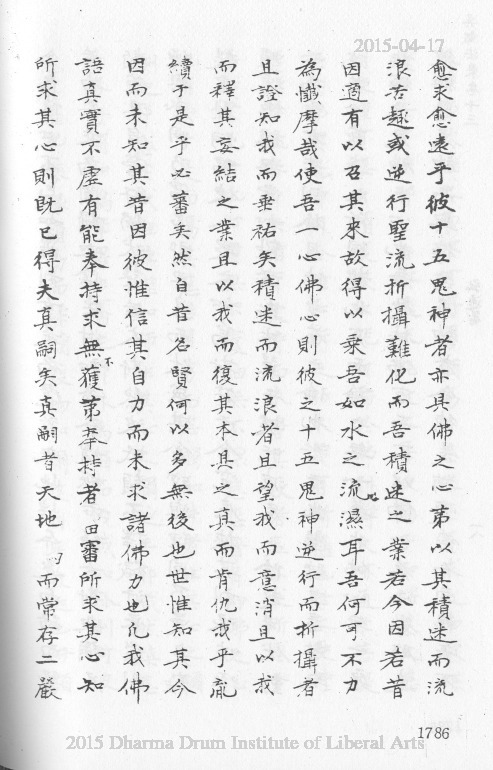 2015-04-17
愈求愈遠乎彼十五鬼神者亦具佛之心第以其積迷而流
浪苦趣或逆行聖流折攝難化而吾積迷之業若今因若昔
因適有以召其來故得以乘吾如水之流濕耳吾何可不力
為懺摩哉使吾一心佛心則彼之十五鬼神逆行而折攝者
且證知我而垂祐矣積迷而流浪者且望我而意消且以我
而釋其妄結之業且以我而復其本具之真而肯仇我乎胤
續于是乎必蕃矣然自昔名賢何以多無後也世惟知其今
因而未知其昔因彼惟信其自力而未求諸佛力也凡我佛
語真實不虛有能奉持求無不獲第奉持者田審所求其心知
所求其心則既已得夫真嗣矣真嗣者天地而常存二嚴
1786
2015 Dharma Drum Institute of Liberal Arts